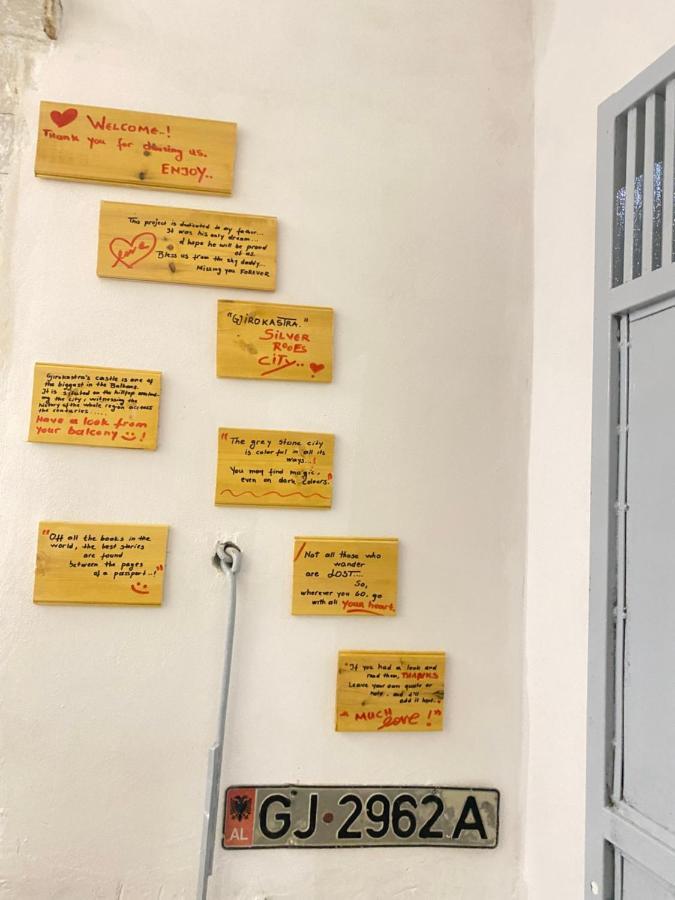 WELCOME..!
Thank you for chosing us.
ENJOY..
This project is dedicated to my father...
It was his only dream...
I hope he will be proud
of us.
Love
Bless us from the sky daddy...
Missing you FOREVER
"GJIROKASTRA."
SILVER
ROOFS
CITY..
Gjirokastra's castle is one of
the biggest in the Balkans.
It is situated on the hilltop
the city, witnessing the
history of the whole region
the centuries.....
Have a look from
your balcony !
"The grey stone city
is colorful in all its
ways...!
You may find magic,
even on dark colours."
"Off all the books in the
world, the best stories
are found
between the pages
of a passport..!"
Not all those who
wander
are LOST...
So,
wherever you GO, go
with all your heart.
"If you had a look and
read them, THANKS
Leave your own quote or
note.. and I'll
add it here..
"MUCH love!"
AL GJ 2962 A